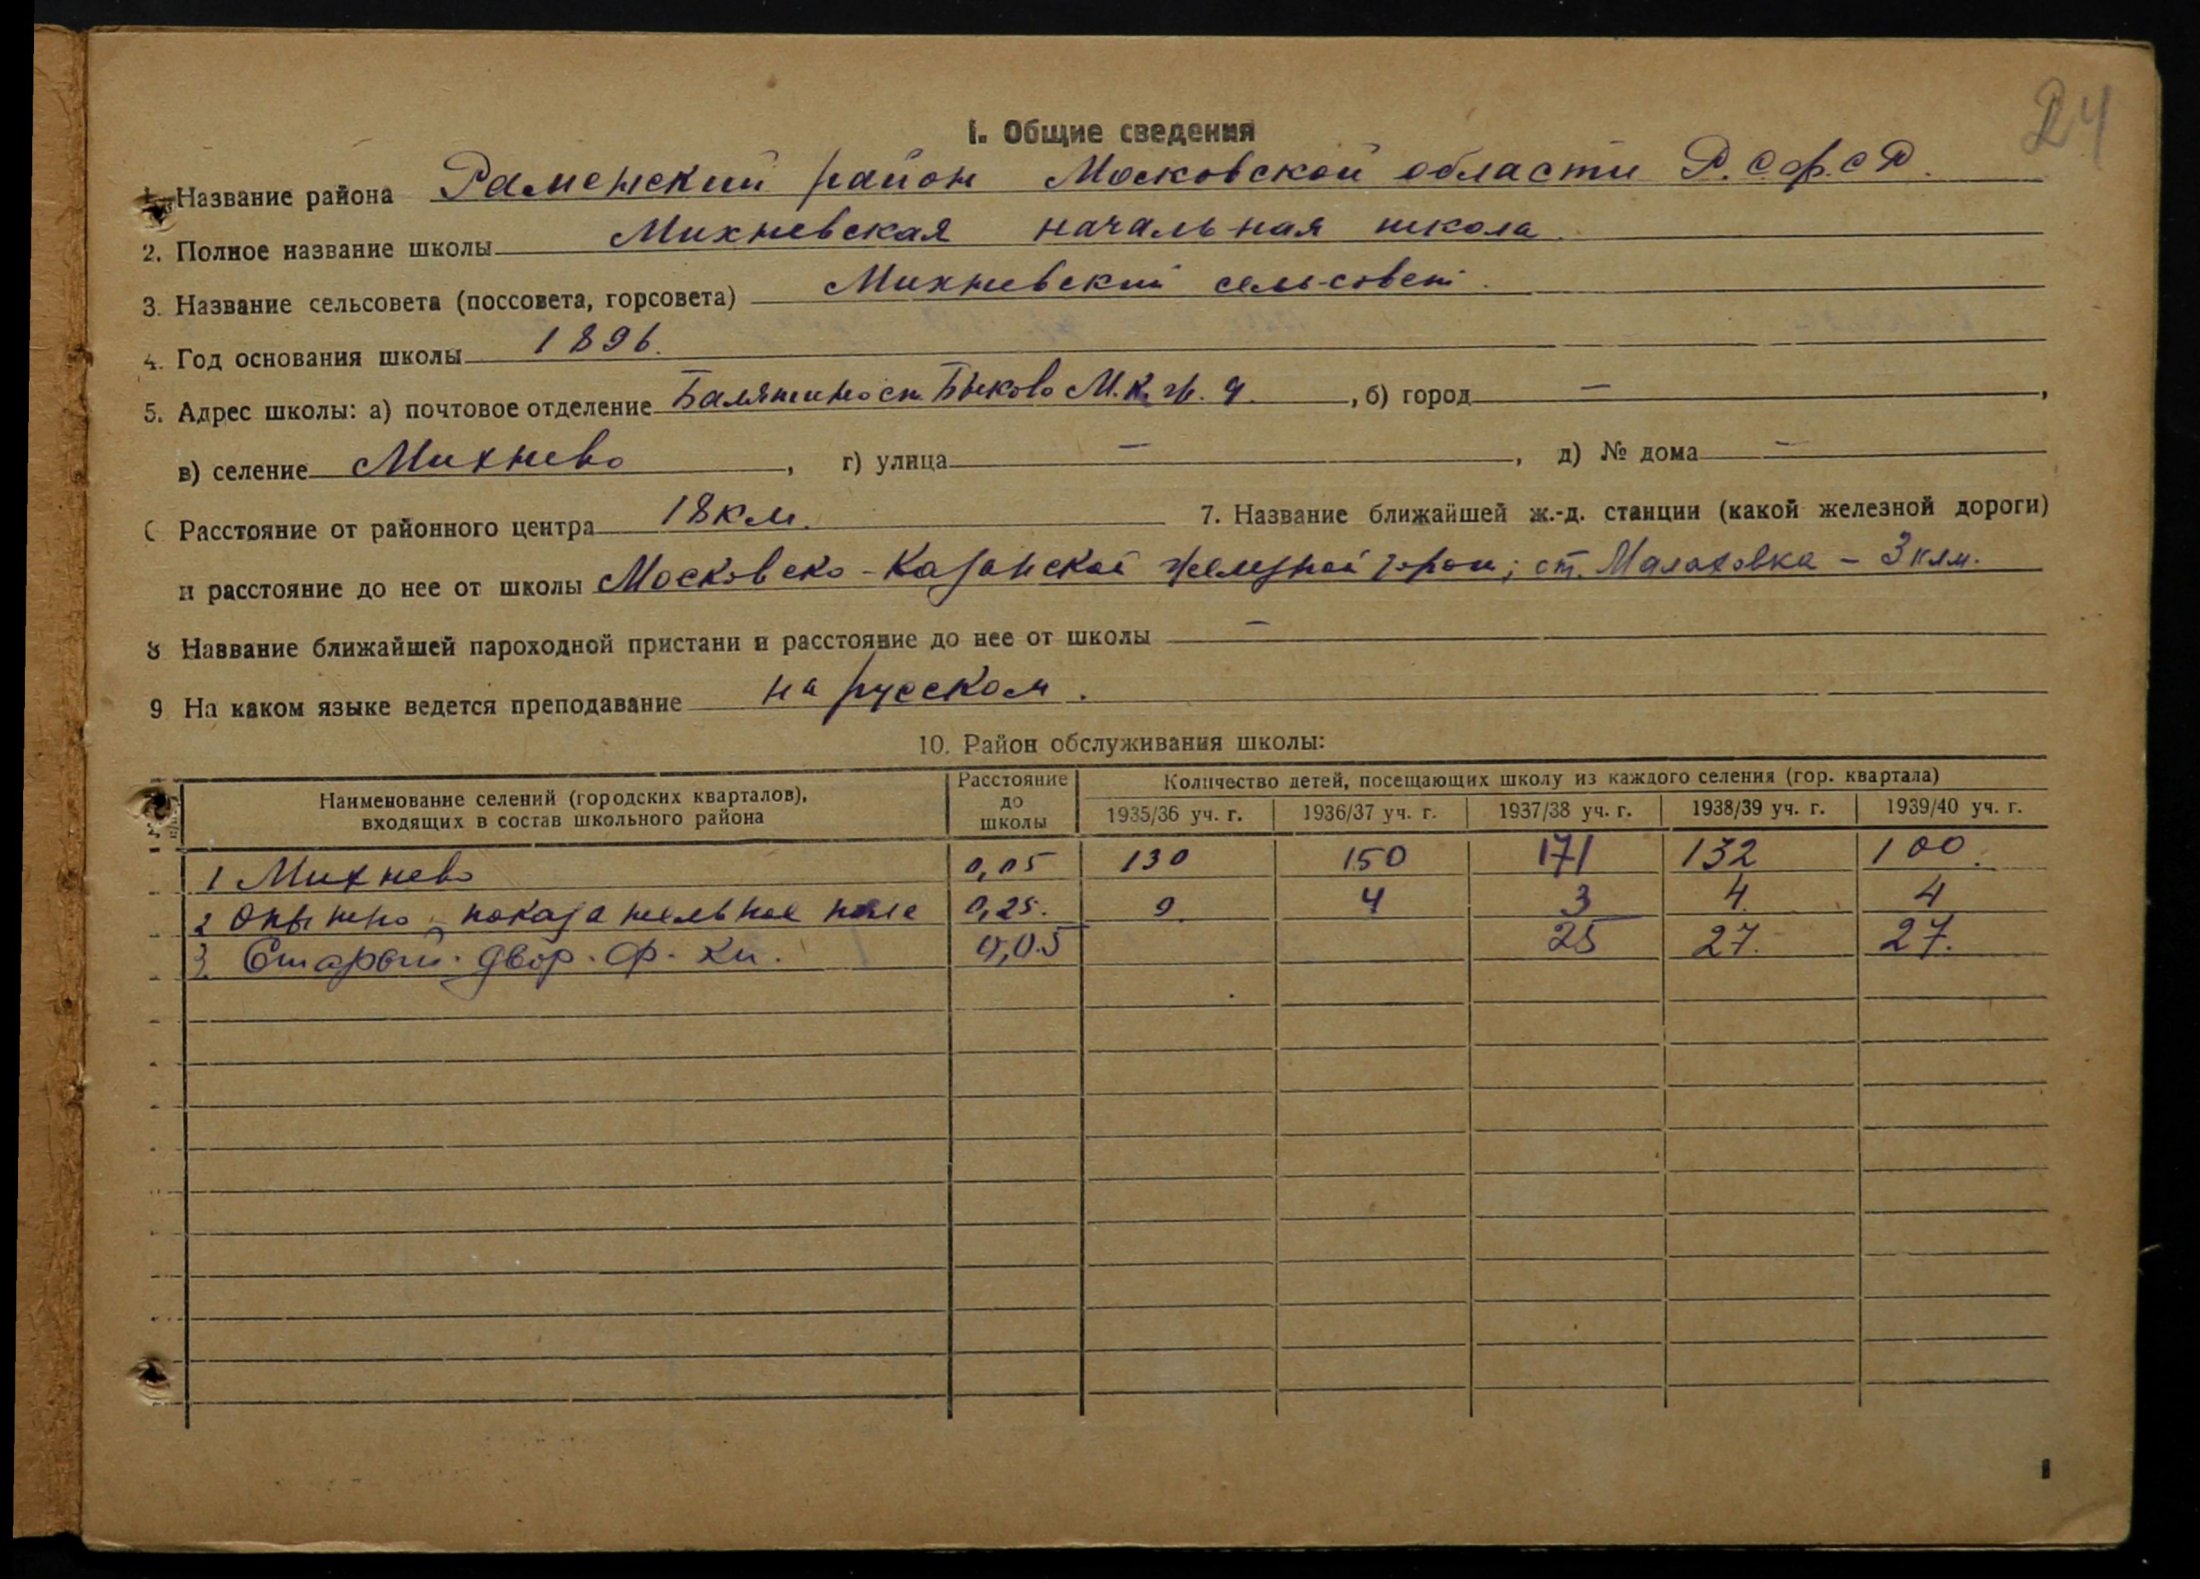 24
I. Общие сведения
1. Название района Раменский район Московской области Р.С.Ф.С.Р.
2. Полное название школы Михневская начальная школа.
3. Название сельсовета (поссовета, горсовета) Михневский сельсовет.
4. Год основания школы 1896.
5. Адрес школы: а) почтовое отделение ст. Быково М.К.ж.д. , б) город — ,
в) селение Михнево , г) улица — , д) № дома —
6 Расстояние от районного центра 18 км. 7. Название ближайшей ж.-д. станции (какой железной дороги)
и расстояние до нее от школы Московско-Казанской железной ; ст. Малаховка – 3 клм.
8 Название ближайшей пароходной пристани и расстояние до нее от школы —
9 На каком языке ведется преподавание на русском.
10. Район обслуживания школы:
Наименование селений (городских кварталов), входящих в состав школьного района Расстояние до школы Количество детей, посещающих школу из каждого селения (гор. квартала)
1935/36 уч. г. 1936/37 уч. г. 1937/38 уч. г. 1938/39 уч. г. 1939/40 уч. г.
1 Михнево 0,05 130 150 171 132 100.
2 Опытно-показательное поле 0,25. 9. 4 3 4. 4
3. Старый двор. ф. 0,05 25 27. 27.
1